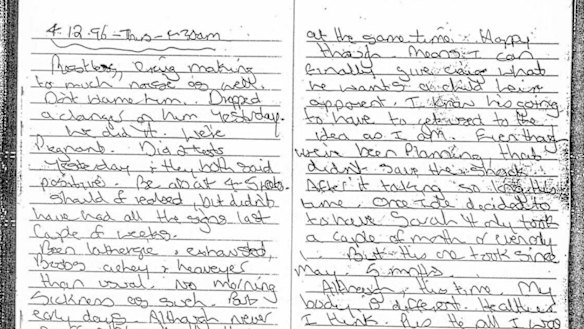 4.12.96 - Thurs - 4.30am
Restless, Craig making
to much noise as well.
Dont blame him. Dropped
a clanger on him yesterday.
we did it. We're
Pregnant. Did 2 tests
yesterday & they both said
positive. Be about 4-5 weeks.
Should of realised, but didn't
have had all the signs last
couple of weeks.
Been lathergic, exhausted,
Boobs achey & heavyer
than usual. No morning
Sickness as such. But
early days. Although never
at the same time. Happy
though means I can
finally give Craig what
he wants a child, heir
apparent. I know his going
to have to get used to the
idea as I am. Even though
we've been Planning, that
didn't save the shock.
After it taking so long this
time. Once I'd decided to
to have Sarah it only took
a couple of month or evenly
1. But this one took since
May. 5 months.
Although, this time. My
body is different. Healthier
I think.